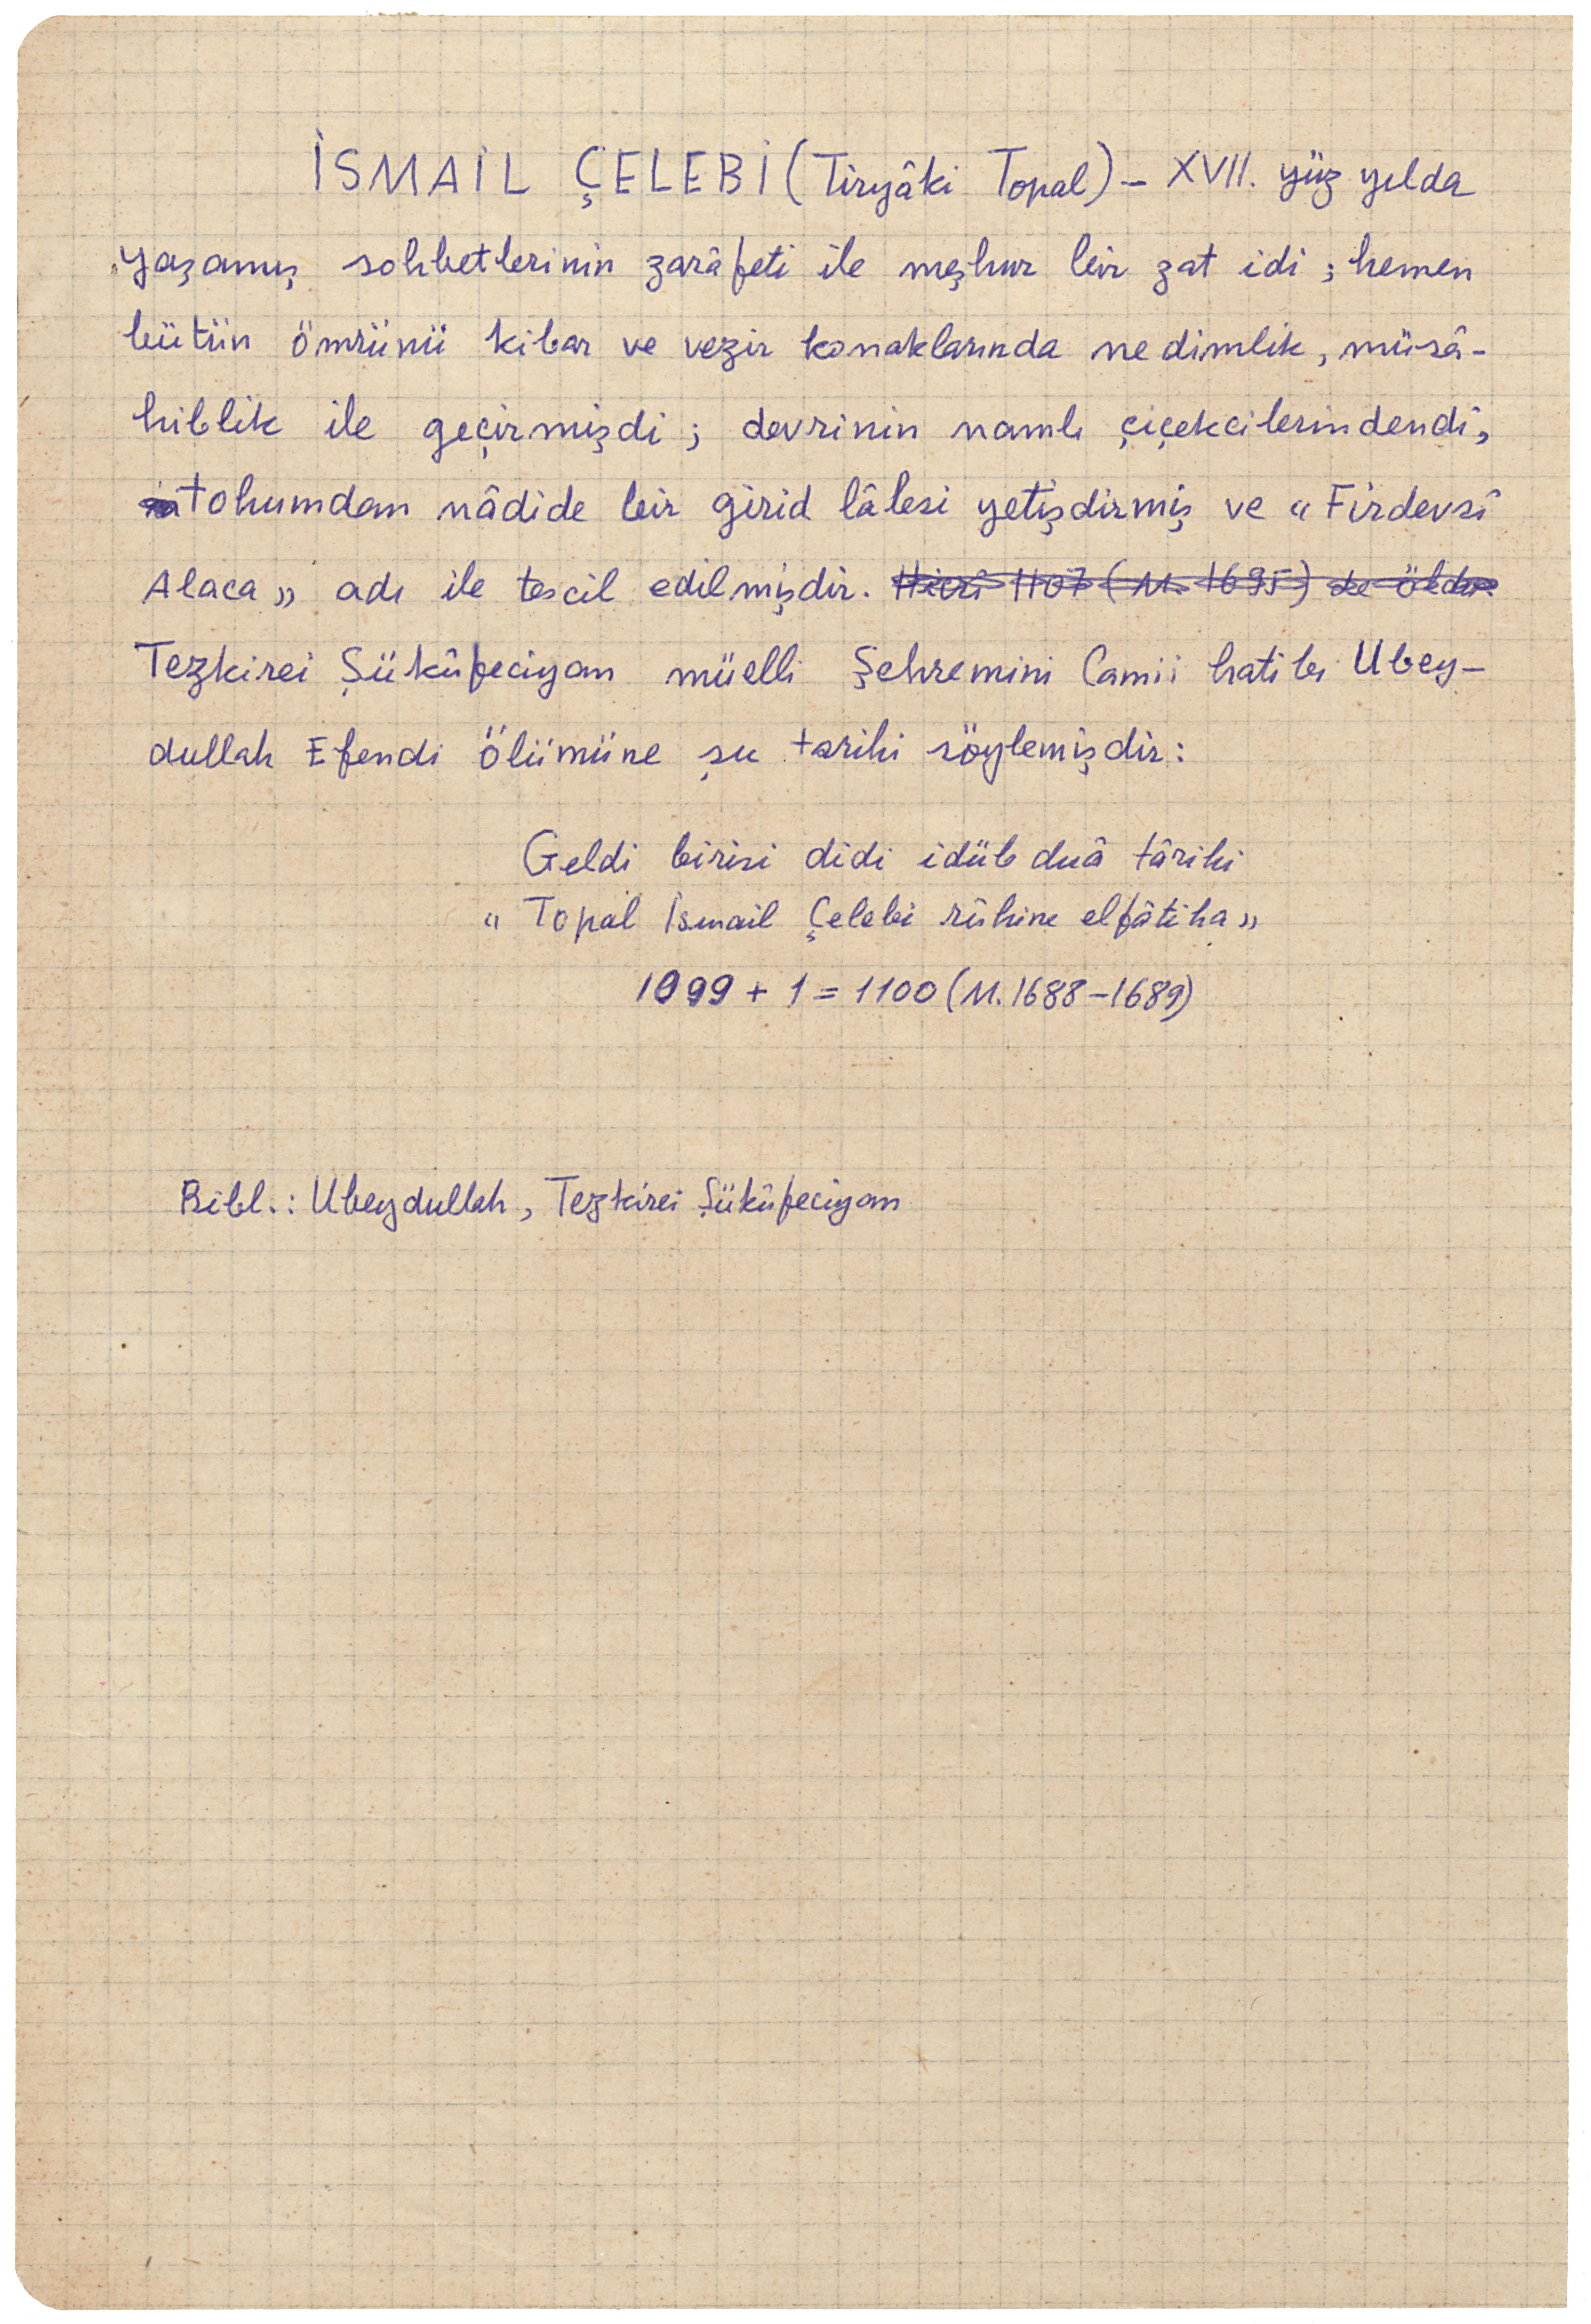 İSMAİL ÇELEBİ (Tiryâki Topal) – XVII. yüz yılda
yaşamış, sohbetlerinin zarâfeti ile meşhur bir zat idi; hemen
bütün ömrünü kibar ve vezir konaklarında nedimlik, müsâ-
hiblik ile geçirmişdi; devrinin namlı çiçekcilerindendi,
tohumdan nâdide bir girid lâlesi yetişdirmiş ve «Firdevsî
Alaca» adı ile tescil edilmişdir. Hicrî 1107 (M. 1695) de öldü.
Tezkirei Şükûfeciyan müelli Şehremini Camii hatibi Ubey-
dullah Efendi ölümüne şu tarihi söylemişdir:
Geldi birisi didi idüb duâ târihi
«Topal İsmail Çelebi rûhine elfâtiha»
1099 + 1 = 1100 (M. 1688–1689)
Bibl.: Ubeydullah, Tezkirei Şükûfeciyan